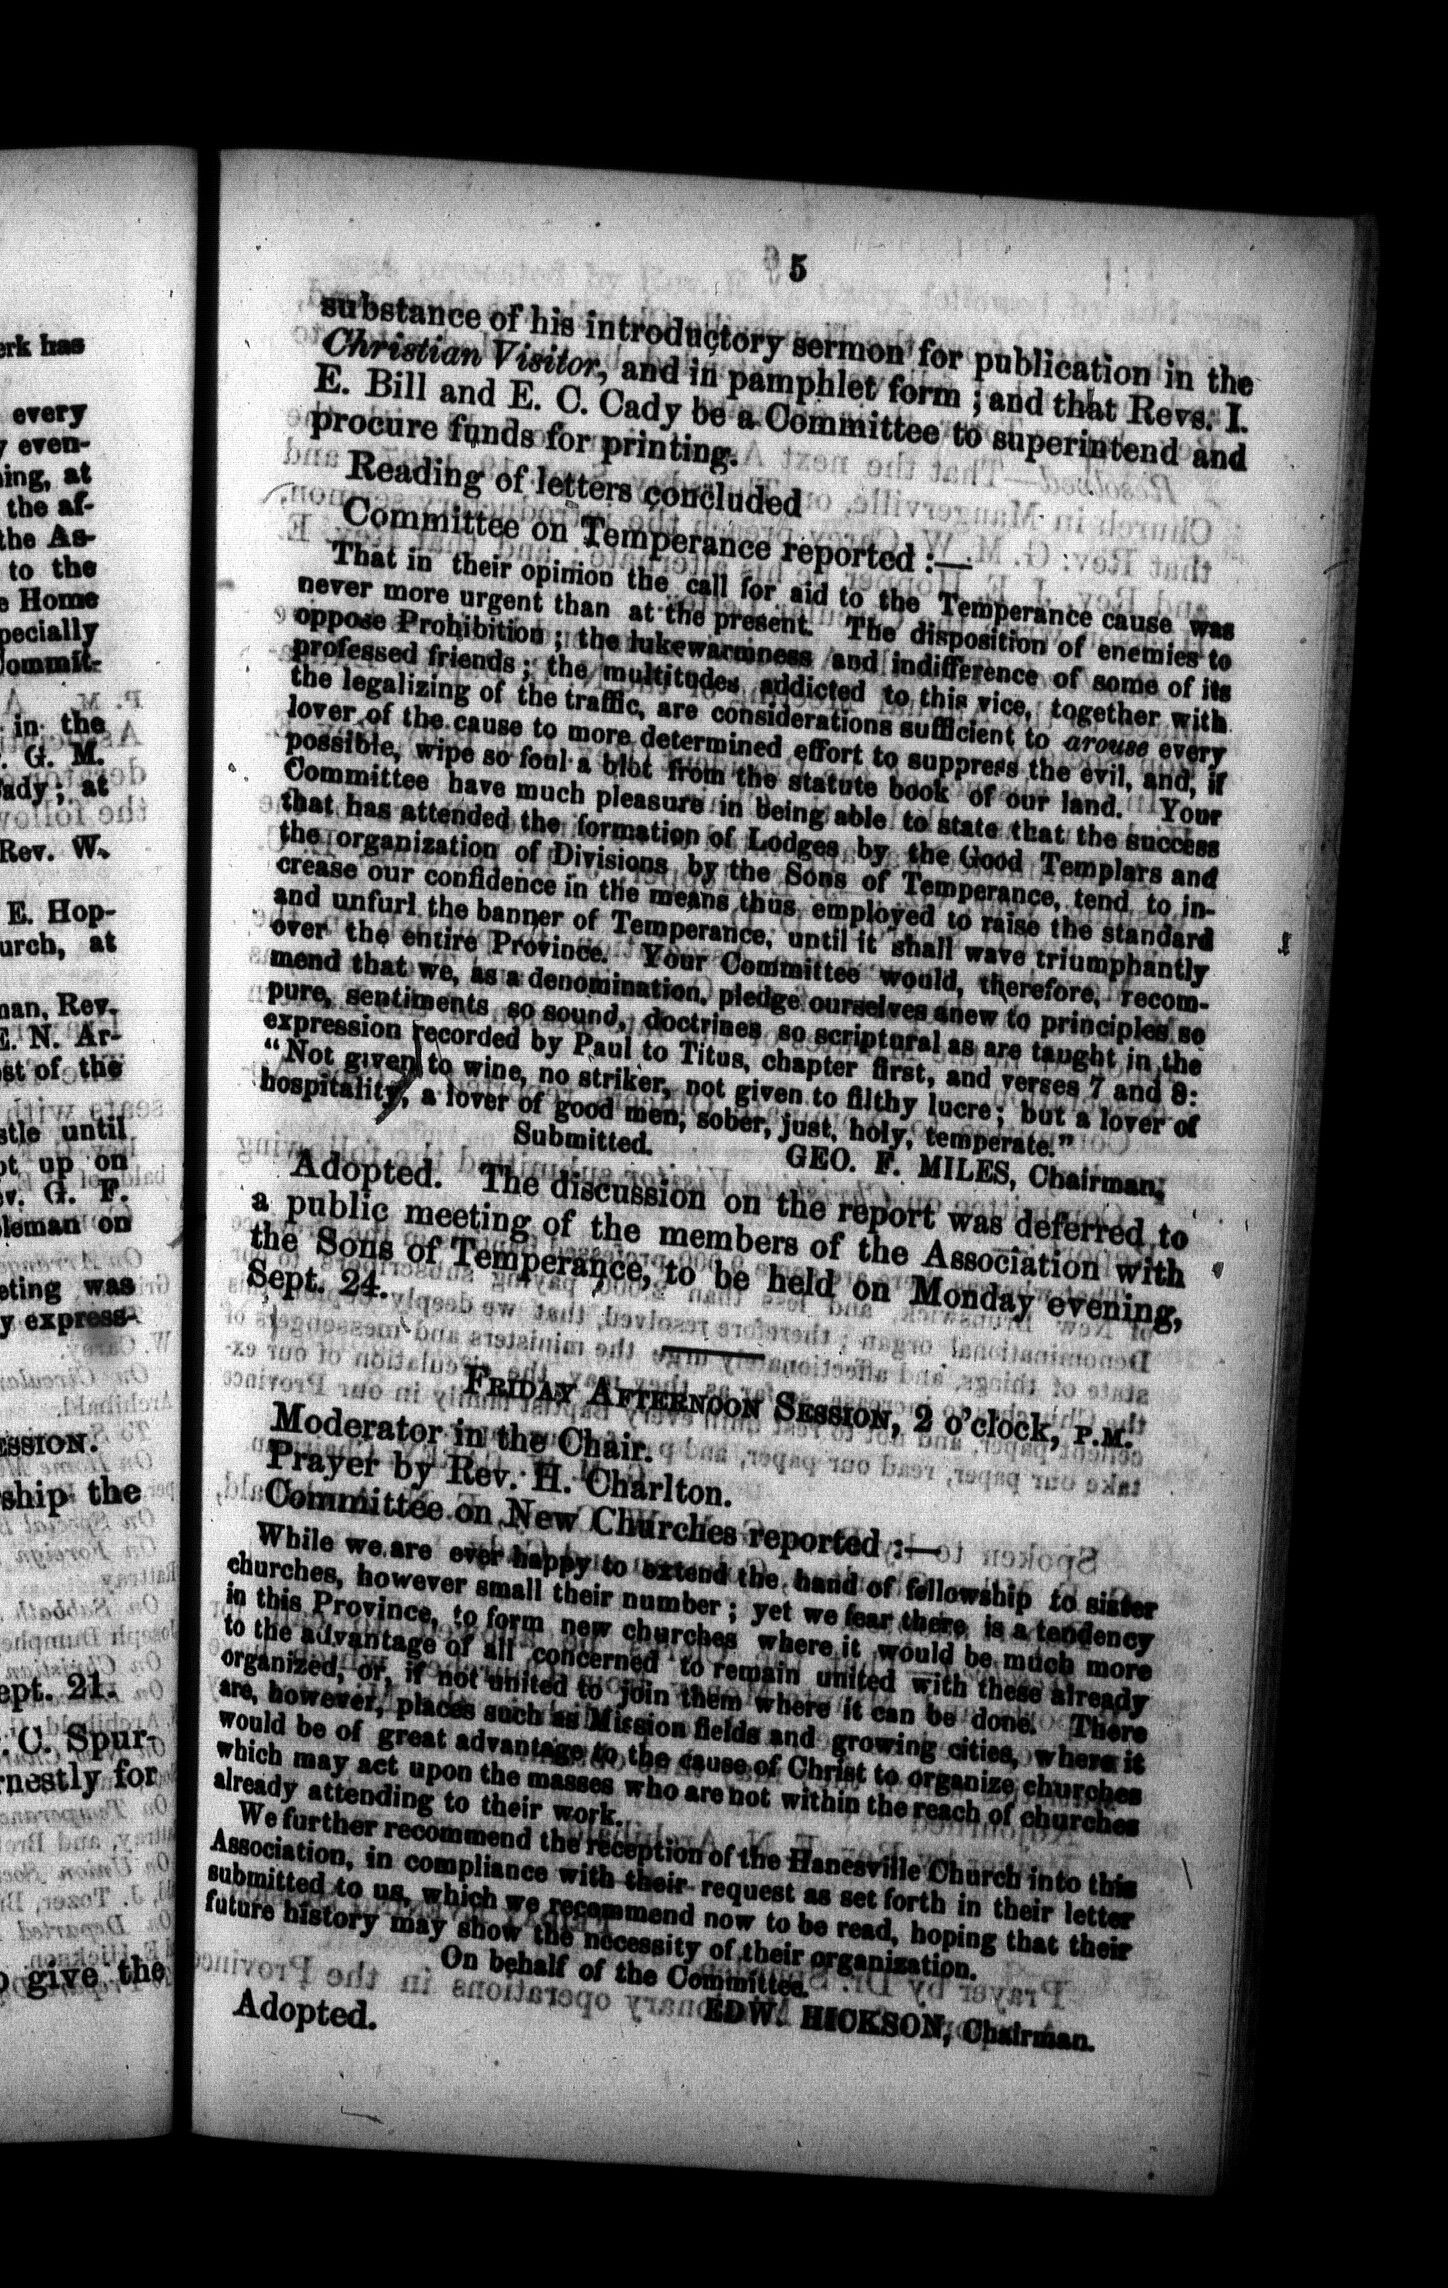 5
substance of his introductory sermon for publication in the
Christian Visitor, and in pamphlet form ; and that Revs. I.
E. Bill and E. C. Cady be a Committee to superintend and
procure funds for printing.
Reading of letters concluded
Committee on Temperance reported :—
That in their opinion the call for aid to the Temperance cause was
never more urgent than at the present. The disposition of enemies to
oppose Prohibition ; the lukewarmness and indifference of some of its
professed friends ; the multitudes addicted to this vice, together with
the legalizing of the traffic, are considerations sufficient to arouse every
lover of the cause to more determined effort to suppress the evil, and, if
possible, wipe so foul a blot from the statute book of our land. Your
Committee have much pleasure in being able to state that the success
that has attended the formation of Lodges by the Good Templars and
the organization of Divisions by the Sons of Temperance, tend to in-
crease our confidence in the means thus employed to raise the standard
and unfurl the banner of Temperance, until it shall wave triumphantly
over the entire Province. Your Committee would, therefore, recom-
mend that we, as a denomination, pledge ourselves anew to principles so
pure, sentiments so sound, doctrines so scriptural as are taught in the
expression recorded by Paul to Titus, chapter first, and verses 7 and 8:
“Not given to wine, no striker, not given to filthy lucre; but a lover of
hospitality, a lover of good men, sober, just, holy, temperate.”
Submitted.
GEO. F. MILES, Chairman.
Adopted. The discussion on the report was deferred to
a public meeting of the members of the Association with
the Sons of Temperance, to be held on Monday evening,
Sept. 24.
FRIDAY AFTERNOON SESSION, 2 o'clock, P.M.
Moderator in the Chair.
Prayer by Rev. H. Charlton.
Committee on New Churches reported :—
While we are ever happy to extend the hand of fellowship to sister
churches, however small their number ; yet we fear there is a tendency
in this Province, to form new churches where it would be much more
to the advantage of all concerned to remain united with these already
organized, or, if not united to join them where it can be done. There
are, however, places such as Mission fields and growing cities, where it
would be of great advantage to the cause of Christ to organize churches
which may act upon the masses who are not within the reach of churches
already attending to their work.
We further recommend the reception of the Hanesville Church into this
Association, in compliance with their request as set forth in their letter
submitted to us, which we recommend now to be read, hoping that their
future history may show the necessity of their organization.
On behalf of the Committee.
EDW. HICKSON, Chairman.
Adopted.